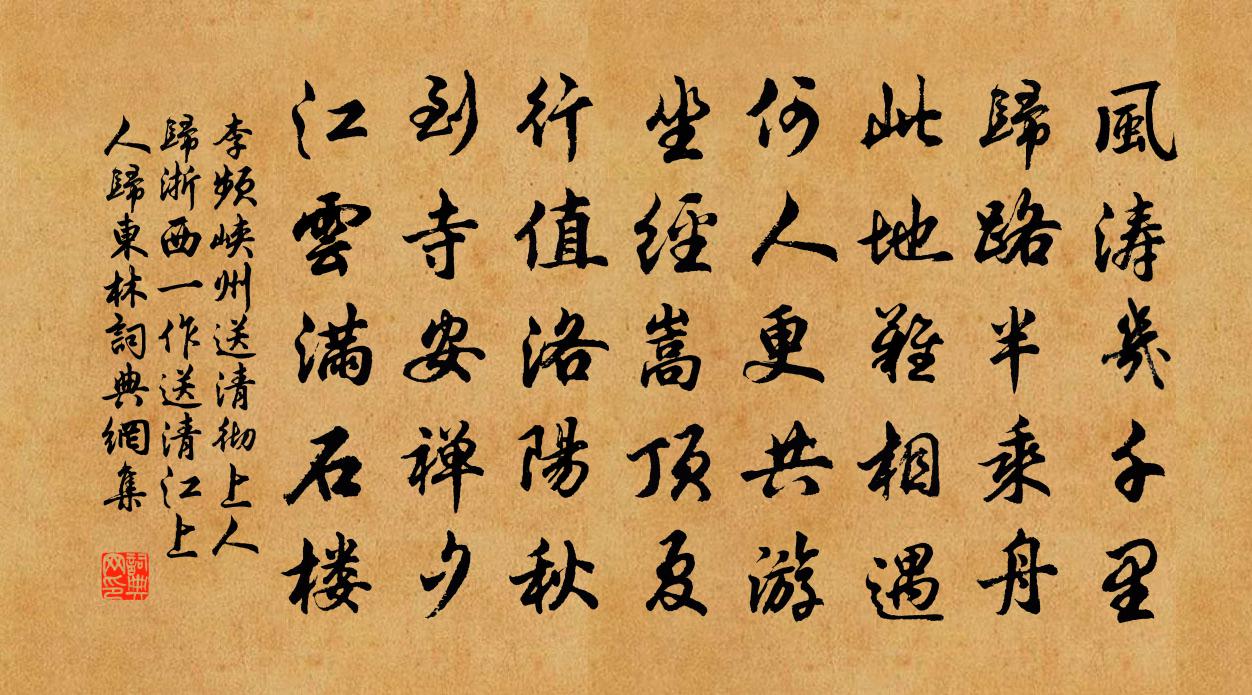 風濤幾千里
歸路半乘舟
此地難相遇
何人更共游
坐經嵩頂夏
行值洛陽秋
到寺安禅夕
江雲滿石楼
李頻峽州送清彻上人
歸浙西一作送清江上
人歸東林詞典網集
詞典
网印